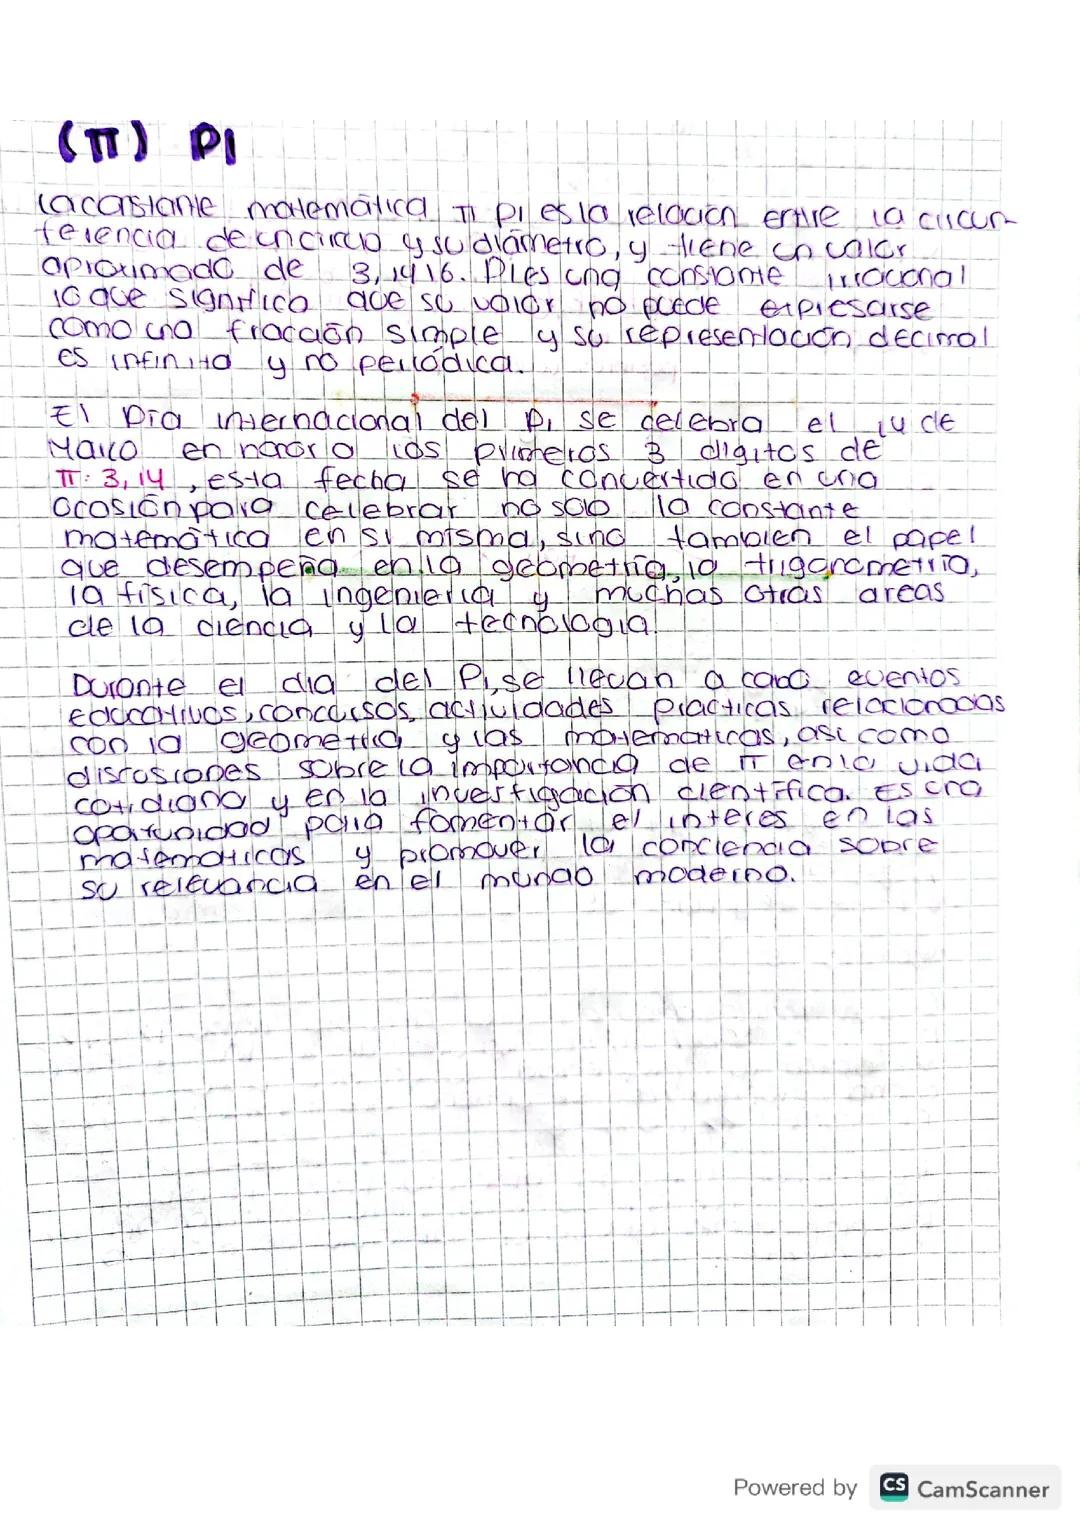 (π) PI
La constante matemática π pi es la relación entre la circun-
ferencia de un circulo y su diámetro, y tiene un valor
aproximado de 3,1416. Pi es una constante irracional
lo que significa que su valor no puede expresarse
como una fracción simple y su representación decimal
es infinita y no periódica.
El Día internacional del Pi se celebra el 14 de
Marzo en honor a los primeros 3 digitos de
π: 3,14, esta fecha se ha convertido en una
ocasión para celebrar no solo la constante
matemática en si misma, sino tambien el papel
que desempeña en la geometría, la trigonometría,
la física, la ingenieria y muchas otras areas
de la ciencia y la tecnologia.
Durante el dia del Pi, se llevan a cabo eventos
educativos, concursos, actividades practicas relacionadas
con la geometria y las matematicas, asi como
discusiones sobre la importancia de π en la vida
cotidiana y en la investigación científica. Es una
oportunidad para fomentar el interes en las
matematicas y promover la conciencia sobre
su relevancia en el mundo moderno.
Powered by CS CamScanner